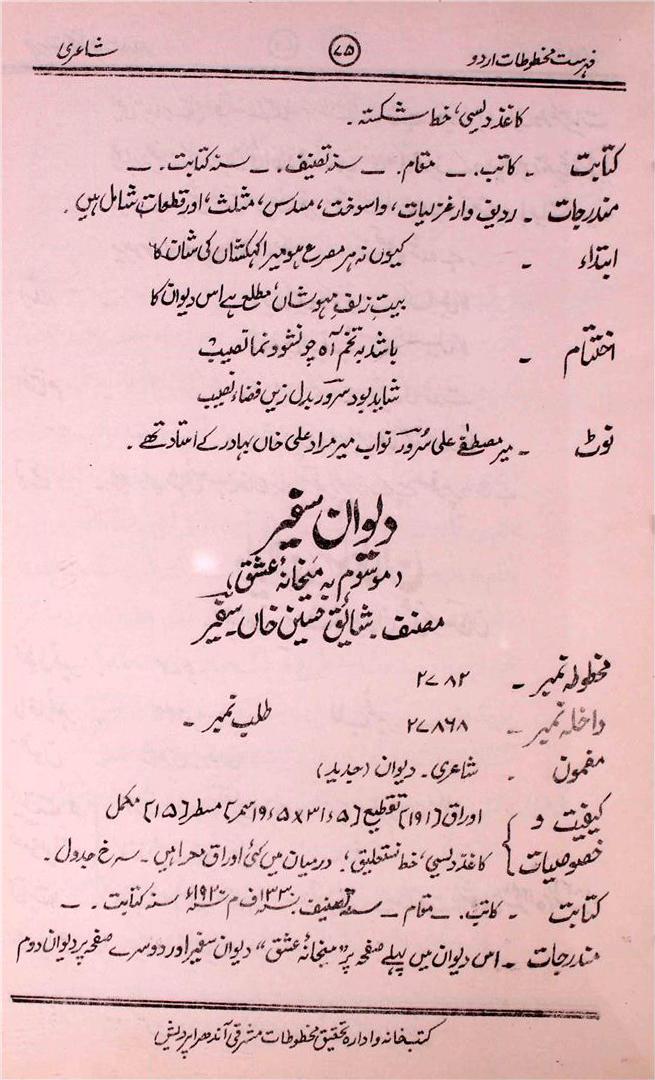 فہرست مخطوطات اردو ۷۵ شاعری
کاغذ دیسی، خط شکستہ۔
کتابت ۔ کاتب۔ — مقام۔ — سنہ تصنیف۔ — سنہ کتابت۔ —
مندرجات ۔ ردیف وار غزلیات، واسوخت، مسدس، مثلث، اور قطعات شامل ہیں۔
ابتداء ۔ کیوں نہ ہر مصرع ہو میرا کہکشاں کی شان کا
بیت زلفِ مہوشاں مطلع ہے اس دیوان کا
اختتام ۔ باشد بہ تخم آہ چو نشو و نما نصیب
شاید بود سرور بدل زیں فضاء نصیب
نوٹ ۔ میر مصطفےٰ علی سرور نواب میر مراد علی خاں بہادر کے استاد تھے۔
دیوان سفیر
(موسوم بہ میخانۂ عشق)
مصنف۔ شائق حسین خاں سفیر
مخطوطہ نمبر ۔ ۲۷۸۲
داخلہ نمبر ۔ ۲۷۸۶۸ طلب نمبر ۔
مضمون ۔ شاعری۔ دیوان (جدید)
کیفیت و اوراق [۱۹۱] تقطیع [۳۱٫۵×۱۹٫۵ سمر] مسطر [۱۵] مکمل
خصوصیات کاغذ دیسی، خط نستعلیق؛ درمیان میں کئی اوراق معرا ہیں۔ سرخ جدول۔
کتابت ۔ کاتب۔ — مقام — سنہ تصنیف۔ ۱۳۳۰ف م ۱۹۲۰ء سنہ کتابت۔ —
مندرجات ۔ اس دیوان میں پہلے صفحہ پر "میخانۂ عشق" دیوان سفیر اور دوسرے صفحہ پر دیوان دوم
کتب خانہ و ادارہ تحقیق مخطوطات مشرقی آندھرا پردیش